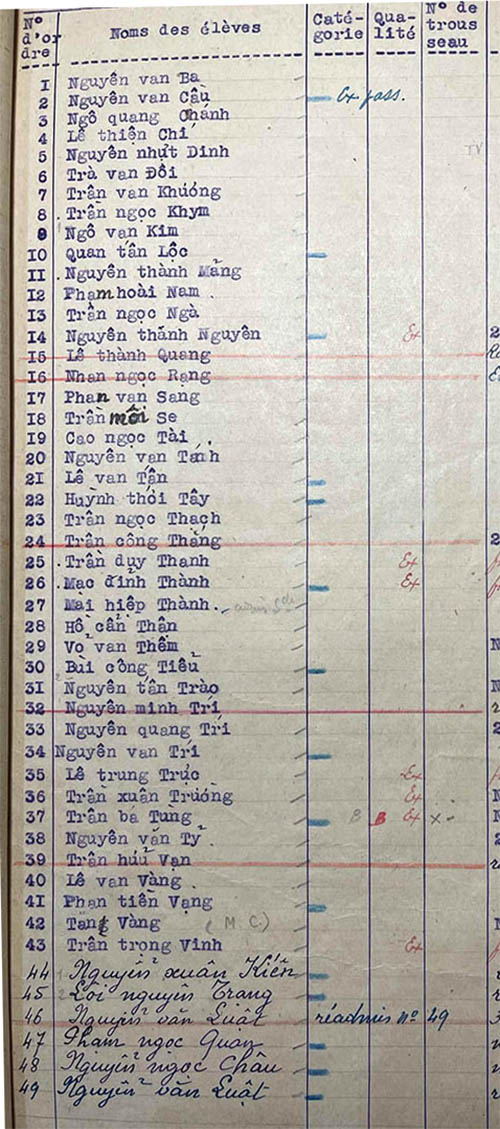 N° d'or dre Noms des élèves Caté- gorie Qua- lité N° de trous seau
1 Nguyên van Ba
2 Nguyên van Cầu Ex pass.
3 Ngô quang Chánh
4 Lê thiện Chí
5 Nguyên nhựt Dinh
6 Trà van Đôi
7 Trần van Khuóng
8 Trần ngọc Khym
9 Ngô van Kim
10 Quan tấn Lộc
11 Nguyên thành Mảng
12 Phạm hoài Nam
13 Trần ngọc Ngà
14 Nguyên thành Nguyên Ex 2
15 Lê thành Quang
16 Nhan ngọc Rạng
17 Phan van Sang
18 Trần môi Se
19 Cao ngọc Tài
20 Nguyên van Tánh
21 Lê van Tấn
22 Huỳnh thới Tây
23 Trần ngọc Thạch
24 Trần công Thắng 2
25 Trần duy Thanh Ex
26 Mạc đình Thành Ex
27 Mai hiệp Thành
28 Hồ cẩn Thân
29 Vỏ van Thêm N
30 Bùi công Tiểu
31 Nguyên tấn Trào N
32 Nguyên minh Trí r
33 Nguyên quang Trí 2
34 Nguyên van Trí
35 Lê trung Trực Ex
36 Trần xuân Trường Ex N
37 Trần bá Tùng B B Ex x N
38 Nguyên văn Tỷ 2
39 Trần hưu Vạn
40 Lê van Vàng
41 Phan tiến Vạng
42 Tăng Vàng (M C.) N
43 Trần trong Vinh Ex
44 Nguyễn xuân Kiến
45 Lôi nguyên Trang
46 Nguyễn văn Luật réadmis N° 49
47 Phạm ngọc Quan
48 Nguyễn ngọc Châu
49 Nguyễn văn Luật